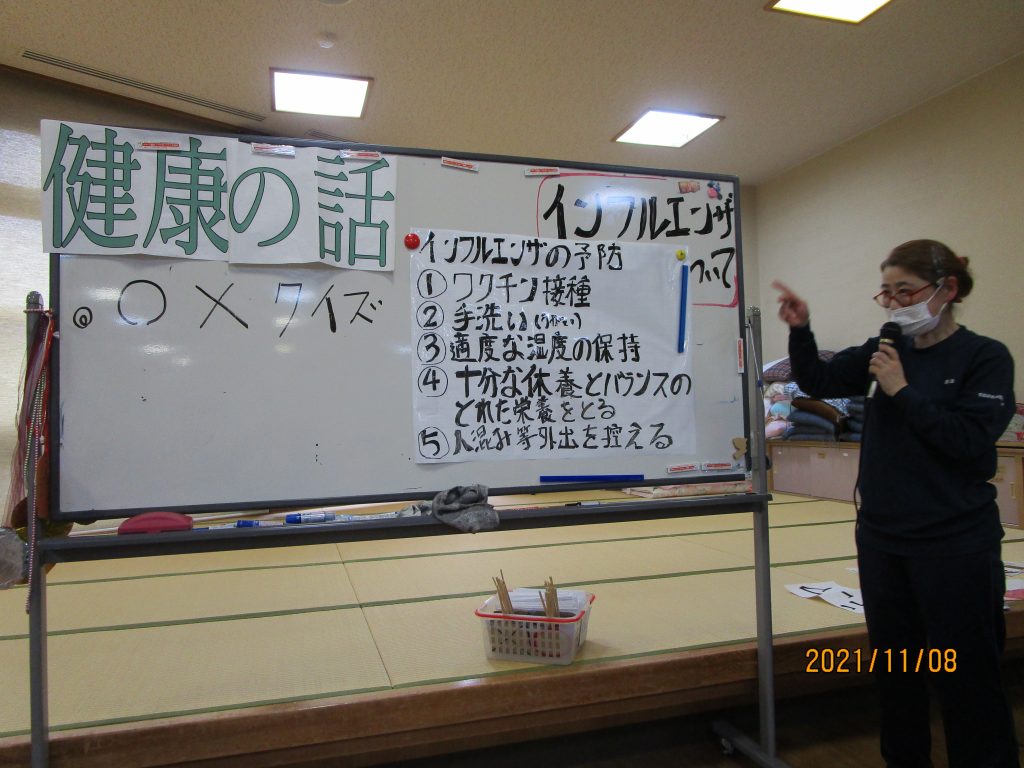 健康の話
インフルエンザ
ついて
◎ ○ × クイズ
インフルエンザの予防
① ワクチン接種
② 手洗い(うがい)
③ 適度な湿度の保持
④ 十分な休養とバランスの
とれた栄養をとる
⑤ 人混み等外出を控える
2021/11/08